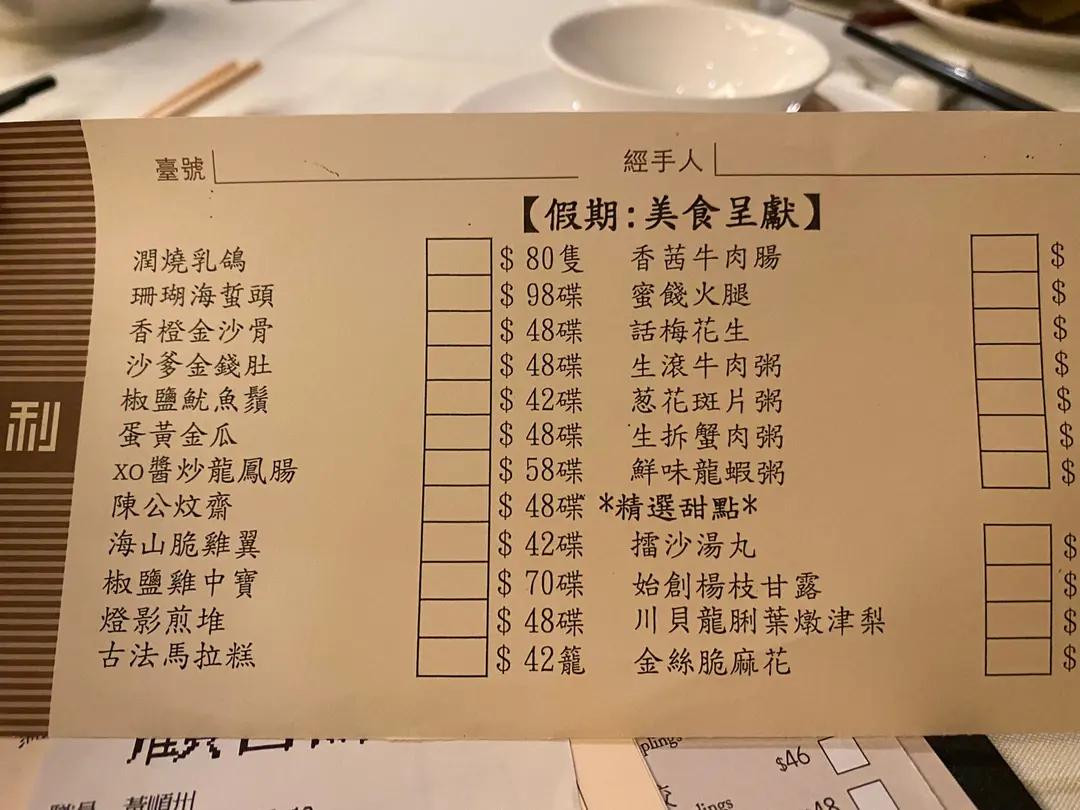 臺號
經手人
【假期:美食呈獻】
潤燒乳鴿 $ 80隻
珊瑚海蜇頭 $ 98碟
香橙金沙骨 $ 48碟
沙爹金錢肚 $ 48碟
椒鹽魷魚鬚 $ 42碟
蛋黃金瓜 $ 48碟
XO醬炒龍鳳腸 $ 58碟
陳公炆齋 $ 48碟
海山脆雞翼 $ 42碟
椒鹽雞中寶 $ 70碟
燈影煎堆 $ 48碟
古法馬拉糕 $ 42籠
香茜牛肉腸 $
蜜餞火腿 $
話梅花生 $
生滾牛肉粥 $
葱花斑片粥 $
生拆蟹肉粥 $
鮮味龍蝦粥 $
*精選甜點*
擂沙湯丸 $
始創楊枝甘露 $
川貝龍脷葉燉津梨 $
金絲脆麻花 $
利
plings
$46
lings
48
黃順州